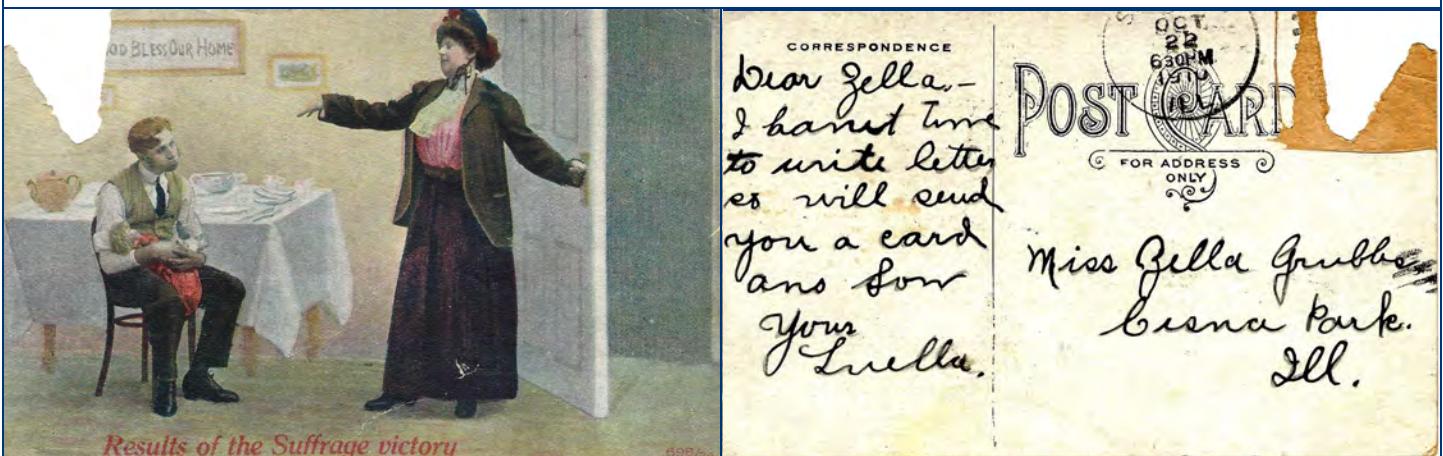 GOD BLESS OUR HOME
Results of the Suffrage victory
CORRESPONDENCE
Dear Zella,-
I hanst Time
to write letter
so will send
you a card
ans Son
Your
Luella.
OCT
22
630PM
1910
ILL
POST CARD
FOR ADDRESS
ONLY
Miss Zella Grubbs
Cisna Park.
Ill.